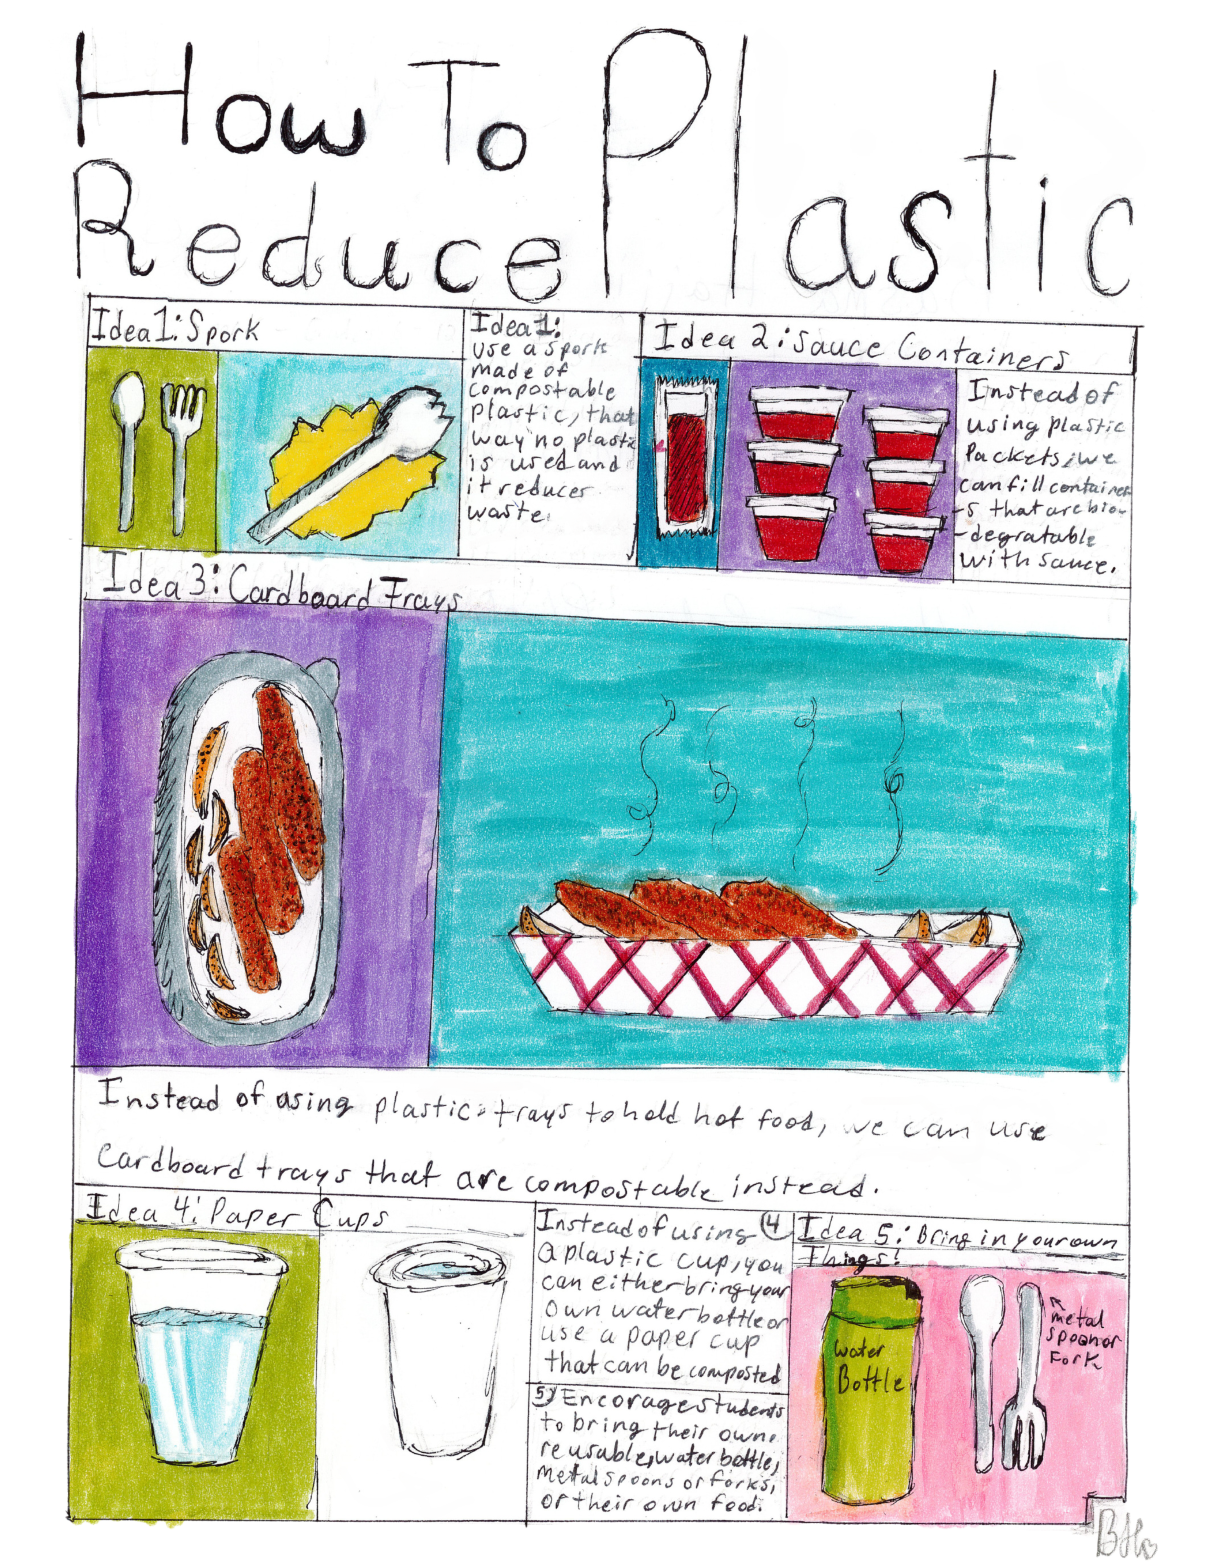 How To Plastic
Reduce
Idea 1: Spork
Idea 1:
use a spork
made of
compostable
plastic, that
way no plastic
is used and
it reducer
waste.
Idea 2: Sauce Containers
Instead of
using plastic
Packets, we
can fill container
-s that are bio-
-degratable
with sauce.
Idea 3: Cardboard Trays
Instead of using plastic trays to hold hot food, we can use
Cardboard trays that are compostable instead.
Idea 4: Paper Cups
Instead of using 4
a plastic cup, you
can either bring your
own water bottle or
use a paper cup
that can be composted
5) Encorage students
to bring their own
reusable, water bottle,
metal spoons or forks,
or their own food.
Idea 5: Bring in your own
Things!
Water
Bottle
metal
spoon or
Fork